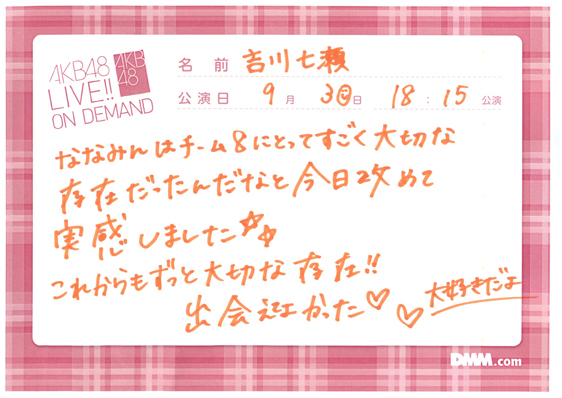 AKB48
LIVE!!
ON DEMAND
AKB
48
名 前 吉川七瀬
公演日 9月 30日 18:15 公演
ななみんはチーム8にとってすごく大切な
存在だったんだなと今日改めて
実感しました☆☆
これからもずっと大切な存在!!
出会えてよかった♡
♡大好きだよ
DMM.com